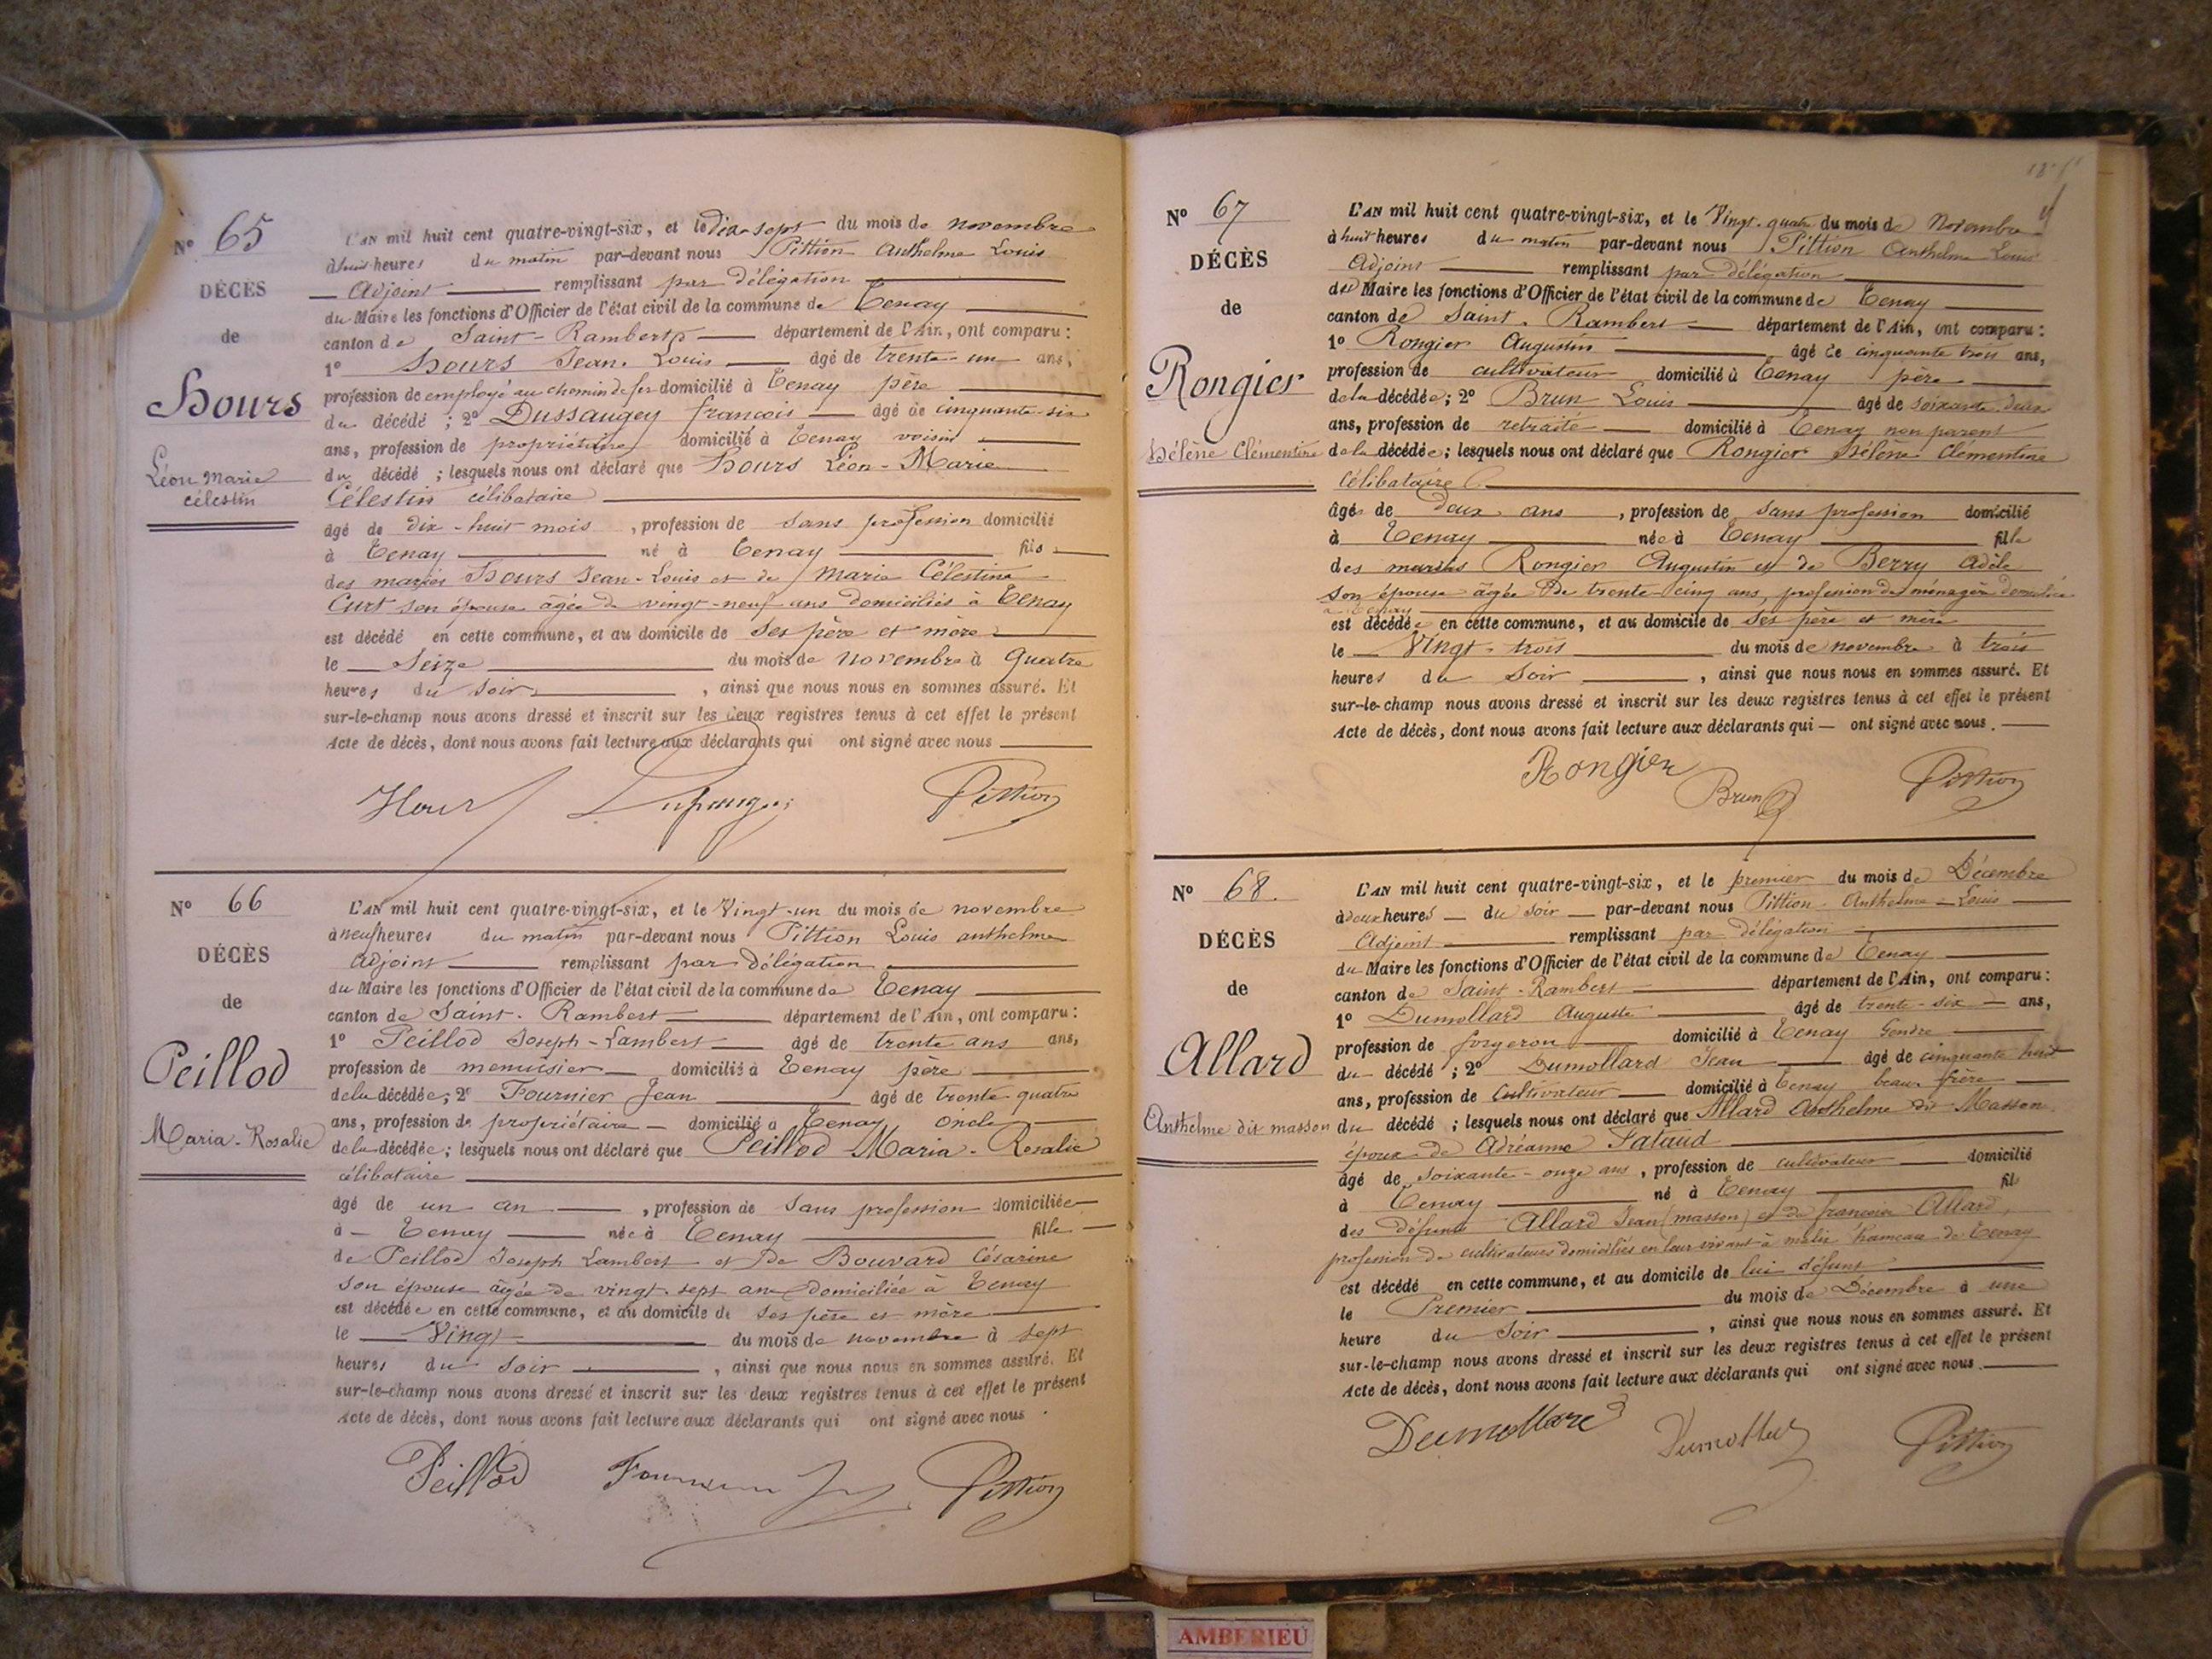 Nº 65
DÉCÈS
de
Hours
Léon Marie
célestin
L'AN mil huit cent quatre-vingt-six, et le dix-sept du mois de novembre
à huit heures du matin par-devant nous Pittion Anthelme Louis
Adjoint remplissant par délégation
du Maire les fonctions d'Officier de l'état civil de la commune de Tenay
canton de Saint-Rambert département de l'Ain, ont comparu :
1º Hours Jean-Louis âgé de trente-un ans,
profession de employé au chemin de fer domicilié à Tenay père
du décédé ; 2º Dussaugey françois âgé de cinquante-six
ans, profession de propriétaire domicilié à Tenay voisin
du décédé ; lesquels nous ont déclaré que Hours Léon-Marie
Célestin célibataire
âgé de dix-huit mois , profession de sans profession domicilié
à Tenay né à Tenay fils
des mariés Hours Jean-Louis et de Marie Célestine
Curt son épouse âgée de vingt-neuf ans domiciliés à Tenay
est décédé en cette commune, et au domicile de ses père et mère
le Seize du mois de novembre à quatre
heures du soir , ainsi que nous nous en sommes assuré. Et
sur-le-champ nous avons dressé et inscrit sur les deux registres tenus à cet effet le présent
Acte de décès, dont nous avons fait lecture aux déclarants qui ont signé avec nous
Hours Pittion
Nº 66
DÉCÈS
de
Peillod
Maria-Rosalie
L'AN mil huit cent quatre-vingt-six, et le Vingt-un du mois de novembre
à neuf heures du matin par-devant nous Pittion Louis anthelme
Adjoint remplissant par délégation
du Maire les fonctions d'Officier de l'état civil de la commune de Tenay
canton de Saint-Rambert département de l'Ain, ont comparu :
1º Peillod Joseph-Lambert âgé de trente ans ans,
profession de menuisier domicilié à Tenay père
de la décédée ; 2º Fournier Jean âgé de trente quatre
ans, profession de propriétaire domicilié à Tenay oncle
de la décédée ; lesquels nous ont déclaré que Peillod Maria-Rosalie
célibataire
âgé de un an , profession de sans profession domiciliée
à Tenay née à Tenay fille
de Peillod Joseph Lambert et de Bouvard Césarine
son épouse âgée de vingt-sept ans domiciliée à Tenay
est décédée en cette commune, et au domicile de ses père et mère
le Vingt du mois de novembre à sept
heures du soir , ainsi que nous nous en sommes assuré. Et
sur-le-champ nous avons dressé et inscrit sur les deux registres tenus à cet effet le présent
Acte de décès, dont nous avons fait lecture aux déclarants qui ont signé avec nous .
Peillod Fournier Pittion
Nº 67
DÉCÈS
de
Rongier
Hélène Clémentine
L'AN mil huit cent quatre-vingt-six, et le Vingt-quatre du mois de Novembre
à huit heures du matin par-devant nous Pittion Anthelme Louis
Adjoint remplissant par délégation
du Maire les fonctions d'Officier de l'état civil de la commune de Tenay
canton de Saint-Rambert département de l'Ain, ont comparu :
1º Rongier Augustin âgé de cinquante trois ans,
profession de cultivateur domicilié à Tenay père
de la décédée ; 2º Brun Louis âgé de soixante-deux
ans, profession de retraité domicilié à Tenay non parent
de la décédée ; lesquels nous ont déclaré que Rongier Hélène Clémentine
Célibataire
âgée de deux ans , profession de sans profession domicilié
à Tenay née à Tenay fille
des mariés Rongier Augustin et de Berry Adèle
son épouse âgée de trente-cinq ans, profession de ménagère domiciliée
à Tenay
est décédée en cette commune, et au domicile de ses père et mère
le Vingt-trois du mois de novembre à trois
heures du soir , ainsi que nous nous en sommes assuré. Et
sur-le-champ nous avons dressé et inscrit sur les deux registres tenus à cet effet le présent
Acte de décès, dont nous avons fait lecture aux déclarants qui ont signé avec nous .
Rongier Brun Pittion
Nº 68.
DÉCÈS
de
Allard
Anthelme dit masson
L'AN mil huit cent quatre-vingt-six, et le premier du mois de Décembre
à deux heures du soir par-devant nous Pittion Anthelme-Louis
Adjoint remplissant par délégation
du Maire les fonctions d'Officier de l'état civil de la commune de Tenay
canton de Saint-Rambert département de l'Ain, ont comparu :
1º Dumollard Auguste âgé de trente-six ans,
profession de forgeron domicilié à Tenay Gendre
du décédé ; 2º Dumollard Jean âgé de cinquante huit
ans, profession de Cultivateur domicilié à Tenay beau-frère
du décédé ; lesquels nous ont déclaré que Allard Anthelme dit Masson
époux de Adréanne
âgé de soixante-onze ans , profession de cultivateur domicilié
à Tenay né à Tenay fils
des défunts Allard Jean (masson) et de françoise Allard,
profession de cultivateurs domiciliés en leur vivant à malix hameau de Tenay
est décédé en cette commune, et au domicile de lui défunt
le Premier du mois de Décembre à une
heure du soir , ainsi que nous nous en sommes assuré. Et
sur-le-champ nous avons dressé et inscrit sur les deux registres tenus à cet effet le présent
Acte de décès, dont nous avons fait lecture aux déclarants qui ont signé avec nous .
Dumollard Dumollard Pittion
AMBERIEU